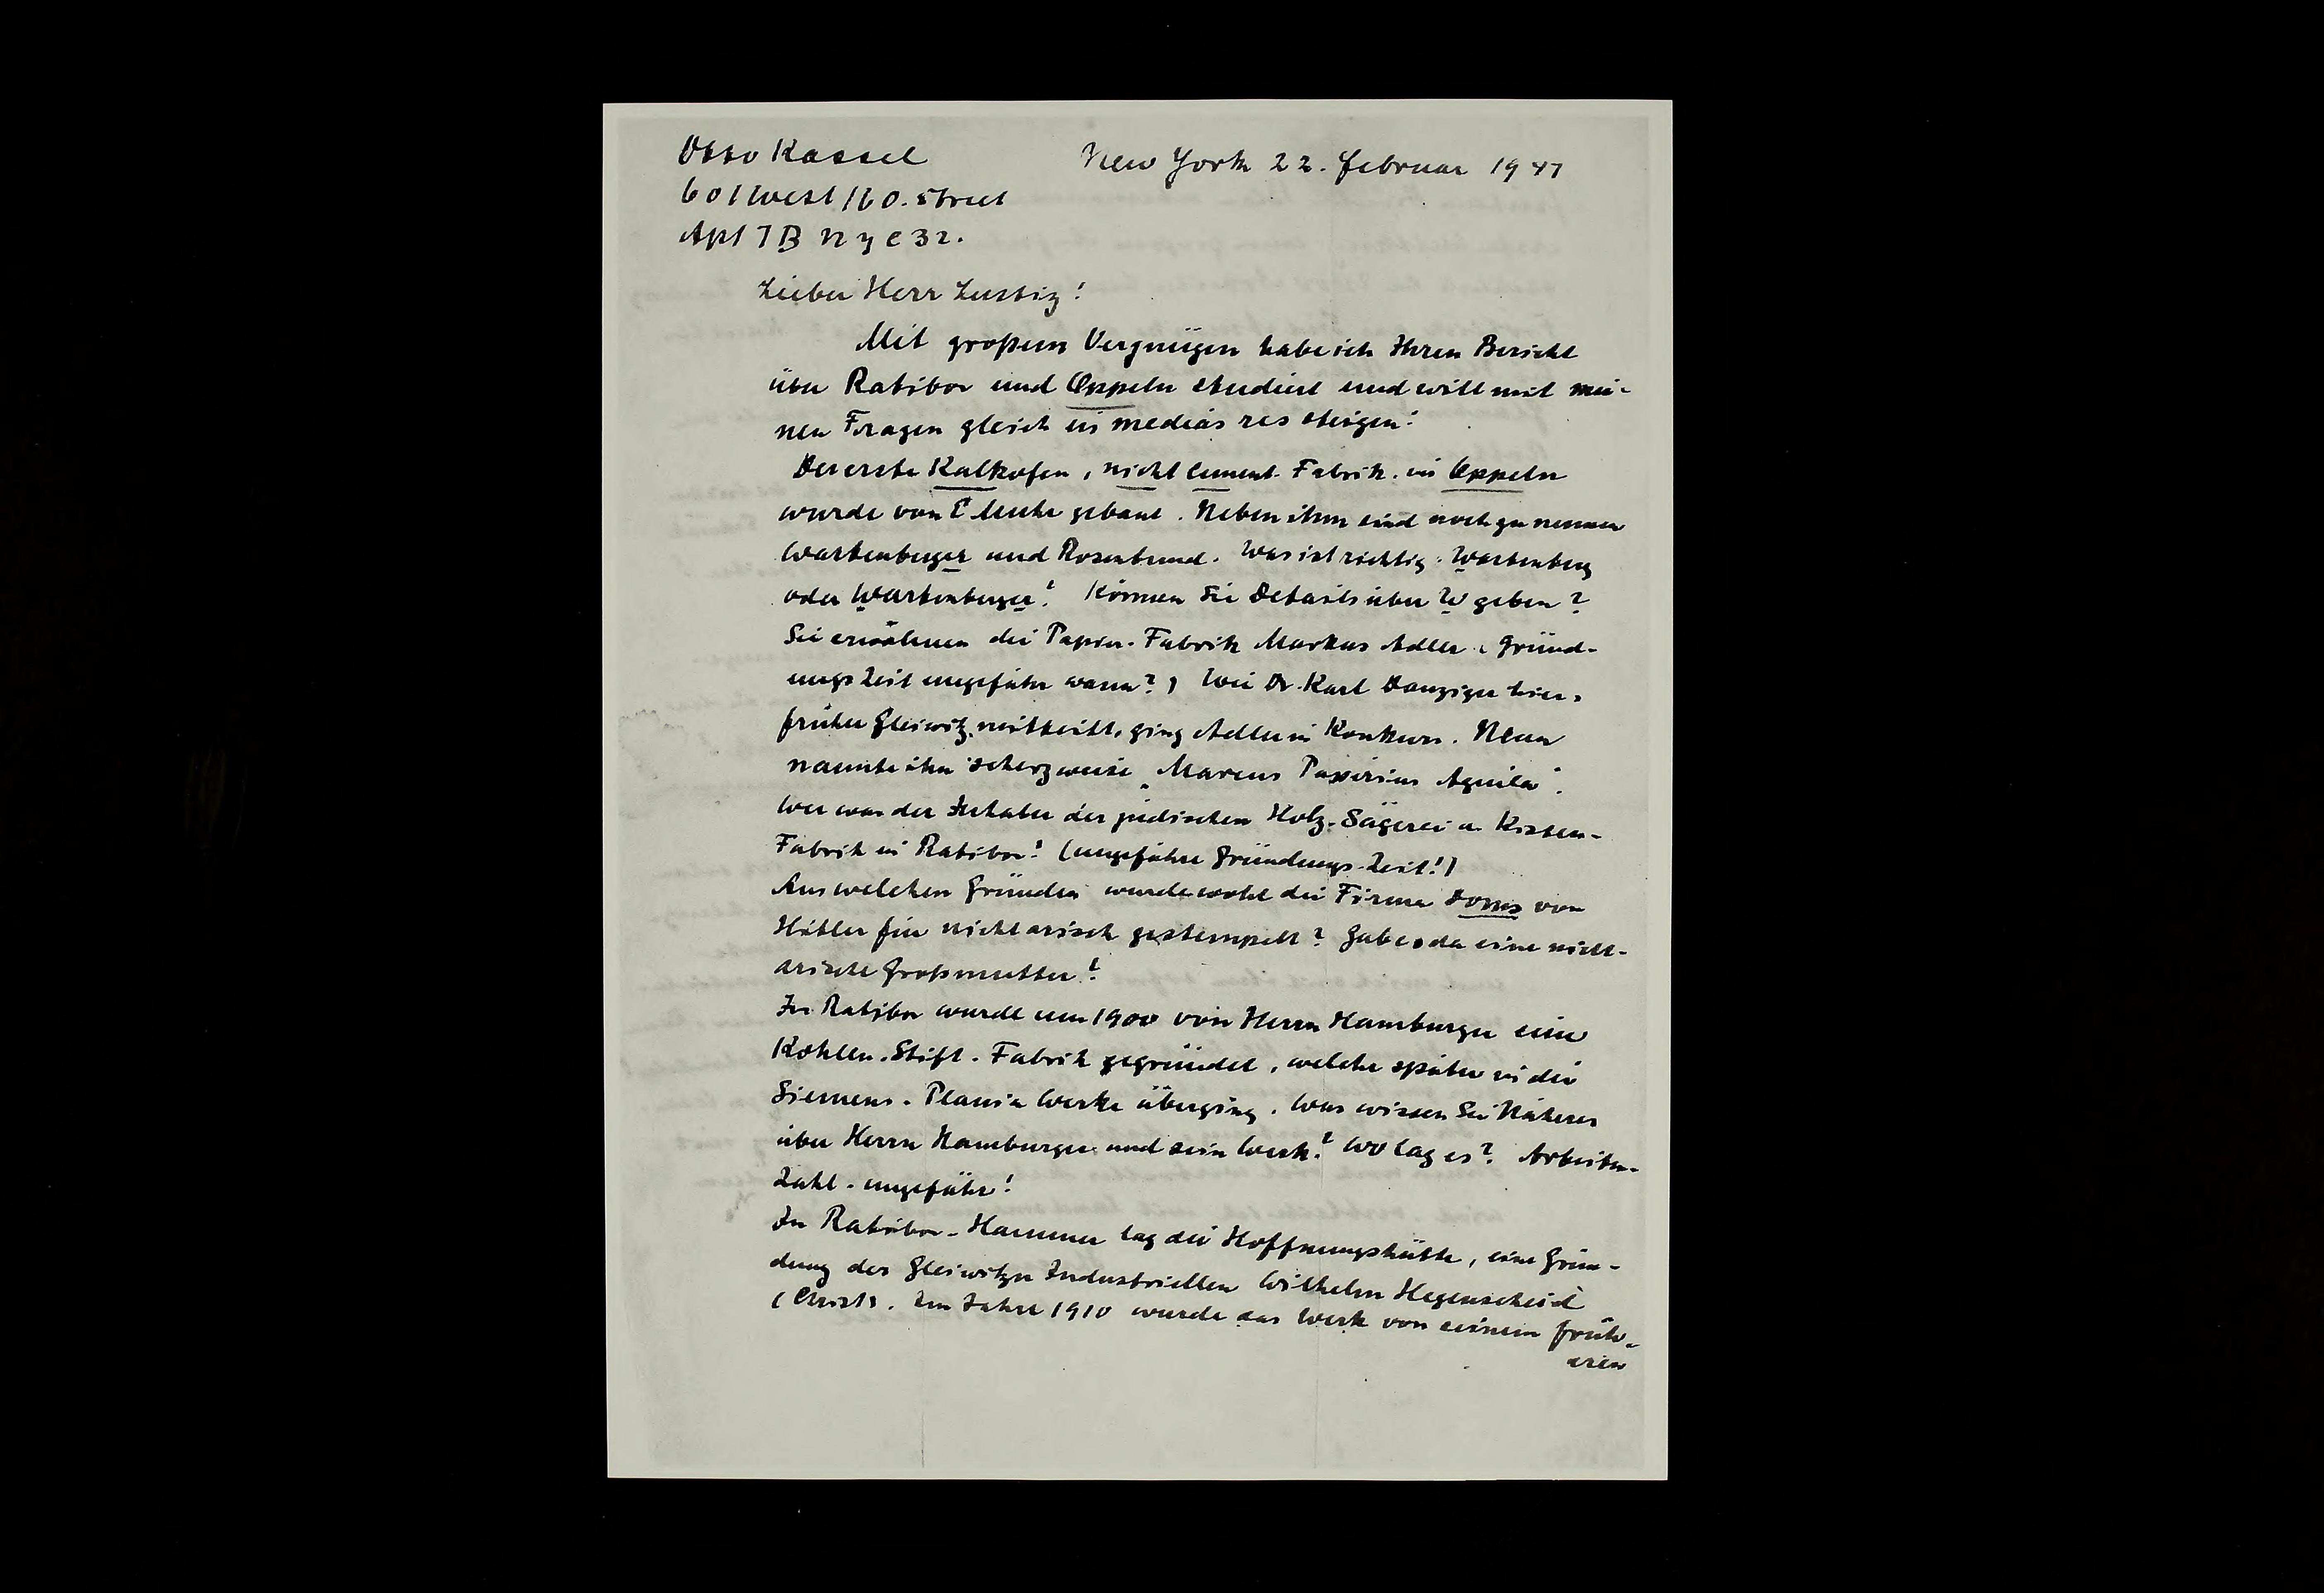 Otto Kassel
New York 22. Februar 1947
601 West 160. Street
Apt 7B N Y C 32.
Lieber Herr Lustig!
Mit großem Vergnügen habe ich Ihren Bericht
über Ratibor und Oppeln studiert und will mit mei-
nen Fragen gleich in medias res steigen:
Der erste Kalkofen, nicht Cement-Fabrik in Oppeln
wurde von E Muhr gebaut. Neben ihm sind noch zu nennen
Wartenberger und Rosenbund. Was ist richtig: Wartenberg
oder Wartenberger? Können Sie Details über W geben?
Sie erwähnen die Papier-Fabrik Markus Adler (Gründ-
ungszeit ungefähr wann?) Wie Dr. Karl Danziger hier,
früher Gleiwitz, mitteilt, ging Adler in Konkurs. Man
nannte ihn scherzweise „Marcus Papirius Aquila".
Wer war der Inhaber der jüdischen Holz-Sägerei u. Kisten-
Fabrik in Ratibor? (ungefähre Gründungs-Zeit?)
Aus welchen Gründen wurde wohl die Firma Doms von
Hitler für nichtarisch gestempelt? Gab es da eine nicht-
arische Großmutter?
In Ratibor wurde um 1900 von Herrn Hamburger eine
Kohlen-Stift-Fabrik gegründet, welche später in die
Siemens-Plania Werke überging. Was wissen Sie Näheres
über Herrn Hamburger und sein Werk? Wo lag es? Arbeiter-
Zahl - ungefähr?
In Ratibor-Hammer lag die Hoffnungshütte, eine Grün-
dung des Gleiwitzer Industriellen Wilhelm Hegenscheidt
(Christ). Im Jahre 1910 wurde das Werk von seinem früh-
eren